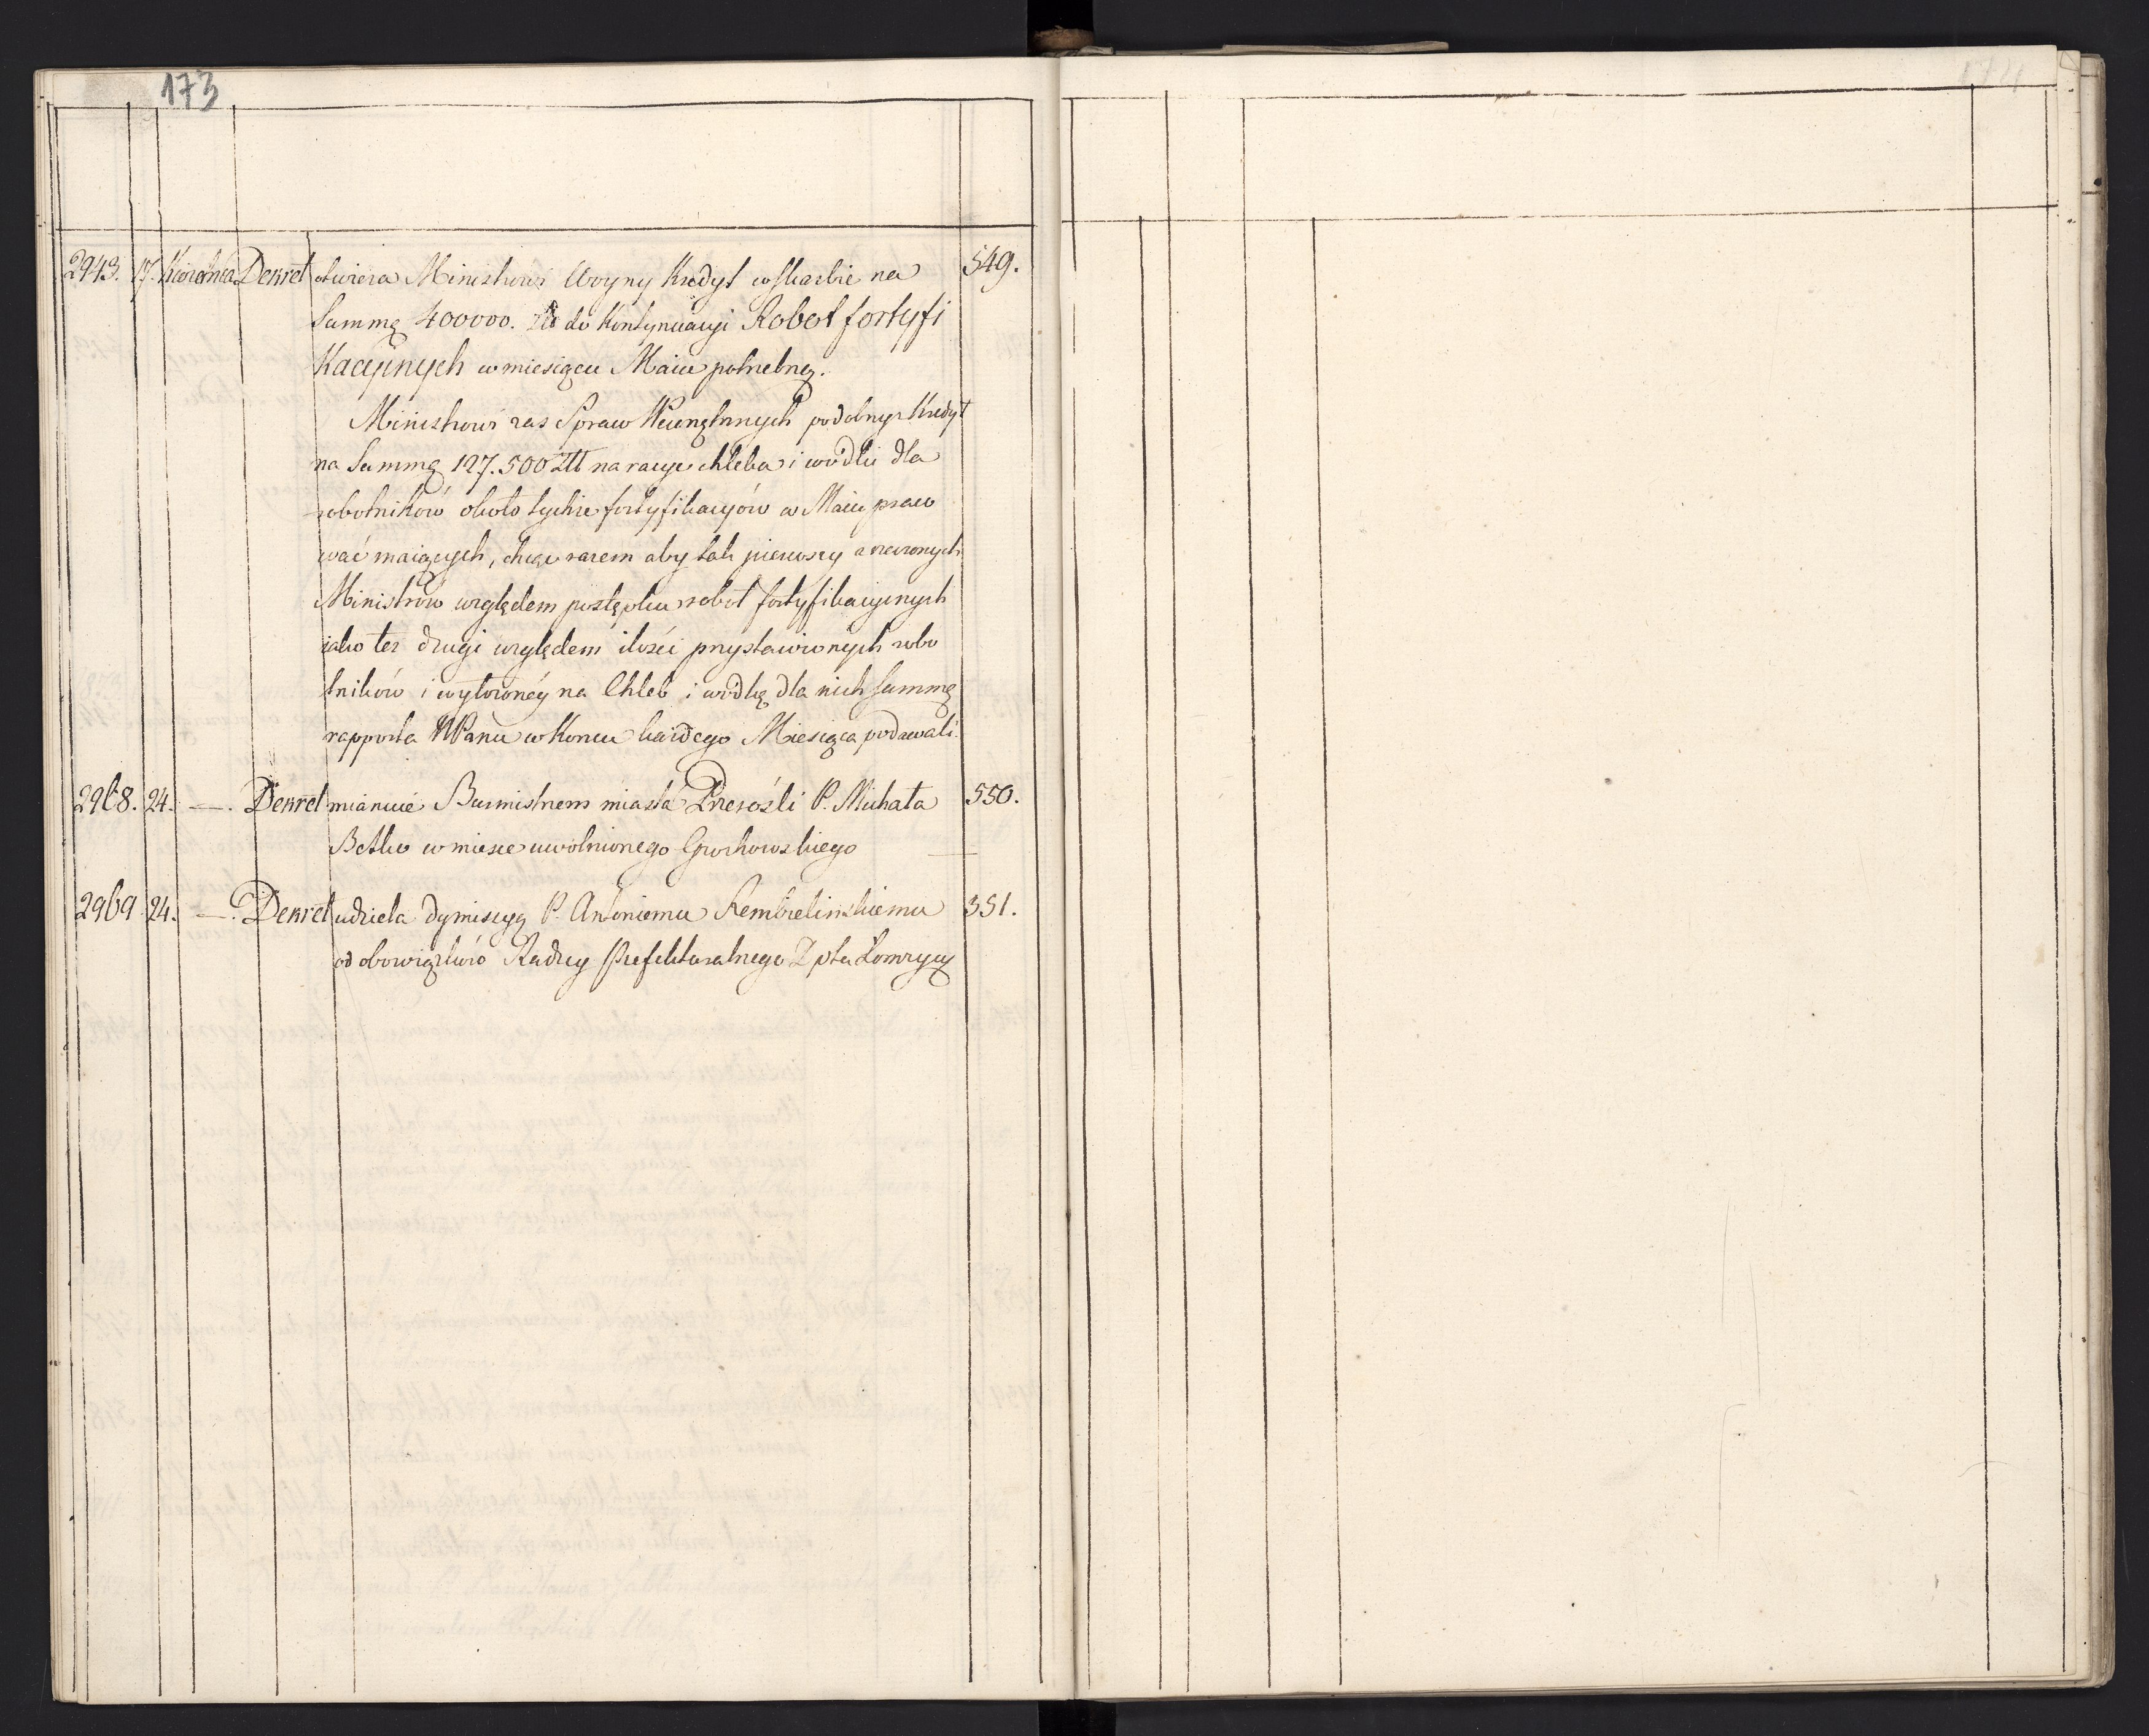 173
174
2943. 17. Kwietnia Dekret otwiera Ministrowi Woyny Kredyt w Skarbie na 549.
Summę 400000. Zł do Kontynuacyi Robot fortyfi
Kacyinych w miesiącu Maiu potrzebną.
Ministrowi zas Spraw Wewnętrznych podobnyż Kredyt
na Summę 127.500 Złt na racye chleba i wódki dla
robotników około tychże fortyfikacyów w Maiu praco
wać maiących, chcąc razem aby tak pierwszy z rzeczonych
Ministrów względem postępku robot fortyfikacyinych
iako też drugi względem ilości przystawionych robo
tników i wyłożonéy na Chleb i wódkę dla nich Summę
rapporta NPanu w Koncu każdego Miesiąca podawali.
2968. 24. —. Dekret mianuie Burmistrzem miasta Przerośli P. Michała 550.
w miesce uwolnionego Grochowskiego
2969 24. —. Dekret udziela dymissyą P. Antoniemu Rembielinskiemu 351.
od obowiązków Radzcy Prefekturalnego Dptu Łomżyń